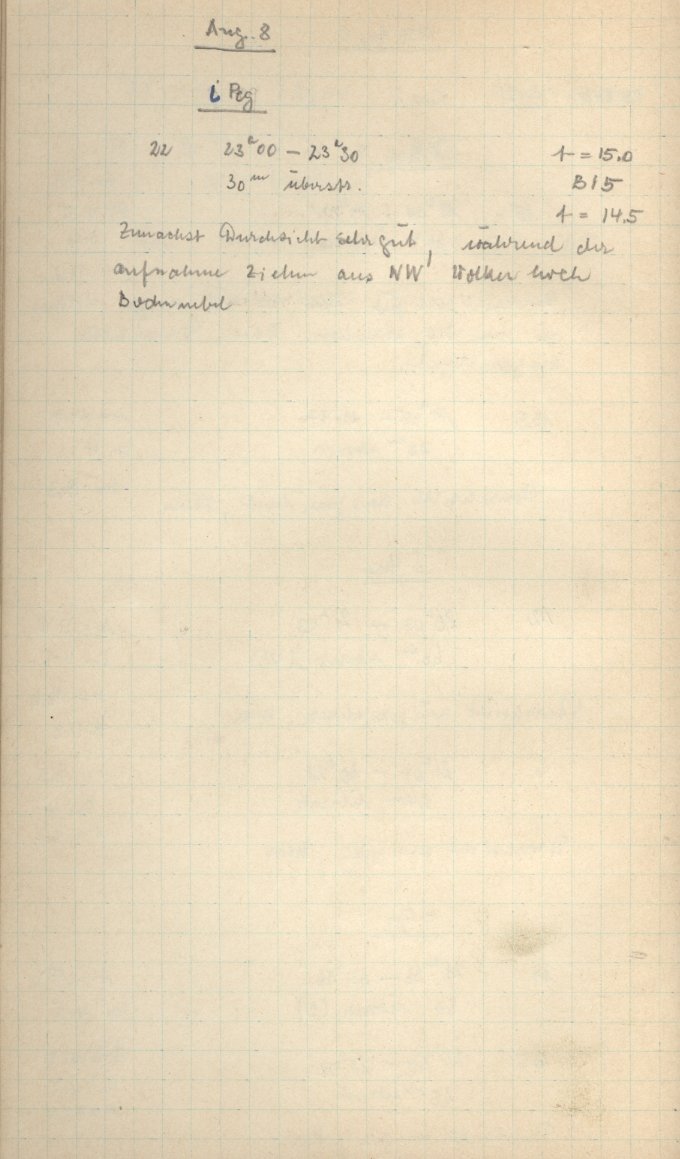 Aug. 8
i Peg
22 23ʰ00 – 23ʰ30 t = 15.0
30ᵐ überstr. B15
t = 14.5
Zunächst Durchsicht sehr gut, während der
Aufnahme ziehen aus NW Wolken hoch
Bodennebel